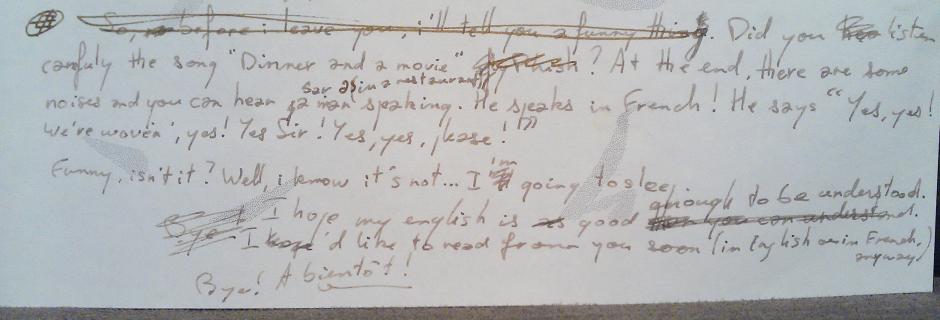 So, before i leave you, i'll tell you a funny thing. Did you listen
carefuly the song "Dinner and a movie" by Phish? At the end, there are some
noises and you can hear a man spaking. He speaks in French! He says "Yes, yes!
as in a restaurant
We're movin', yes! Yes Sir! Yes, yes, please!"
Funny, isn't it? Well, i know it's not... I'm going to sleep.
I hope my english is good enough to be understood.
Bye! I hope 'd like to read from you soon (in English or in French,
anyway)
Bye! A bientôt!